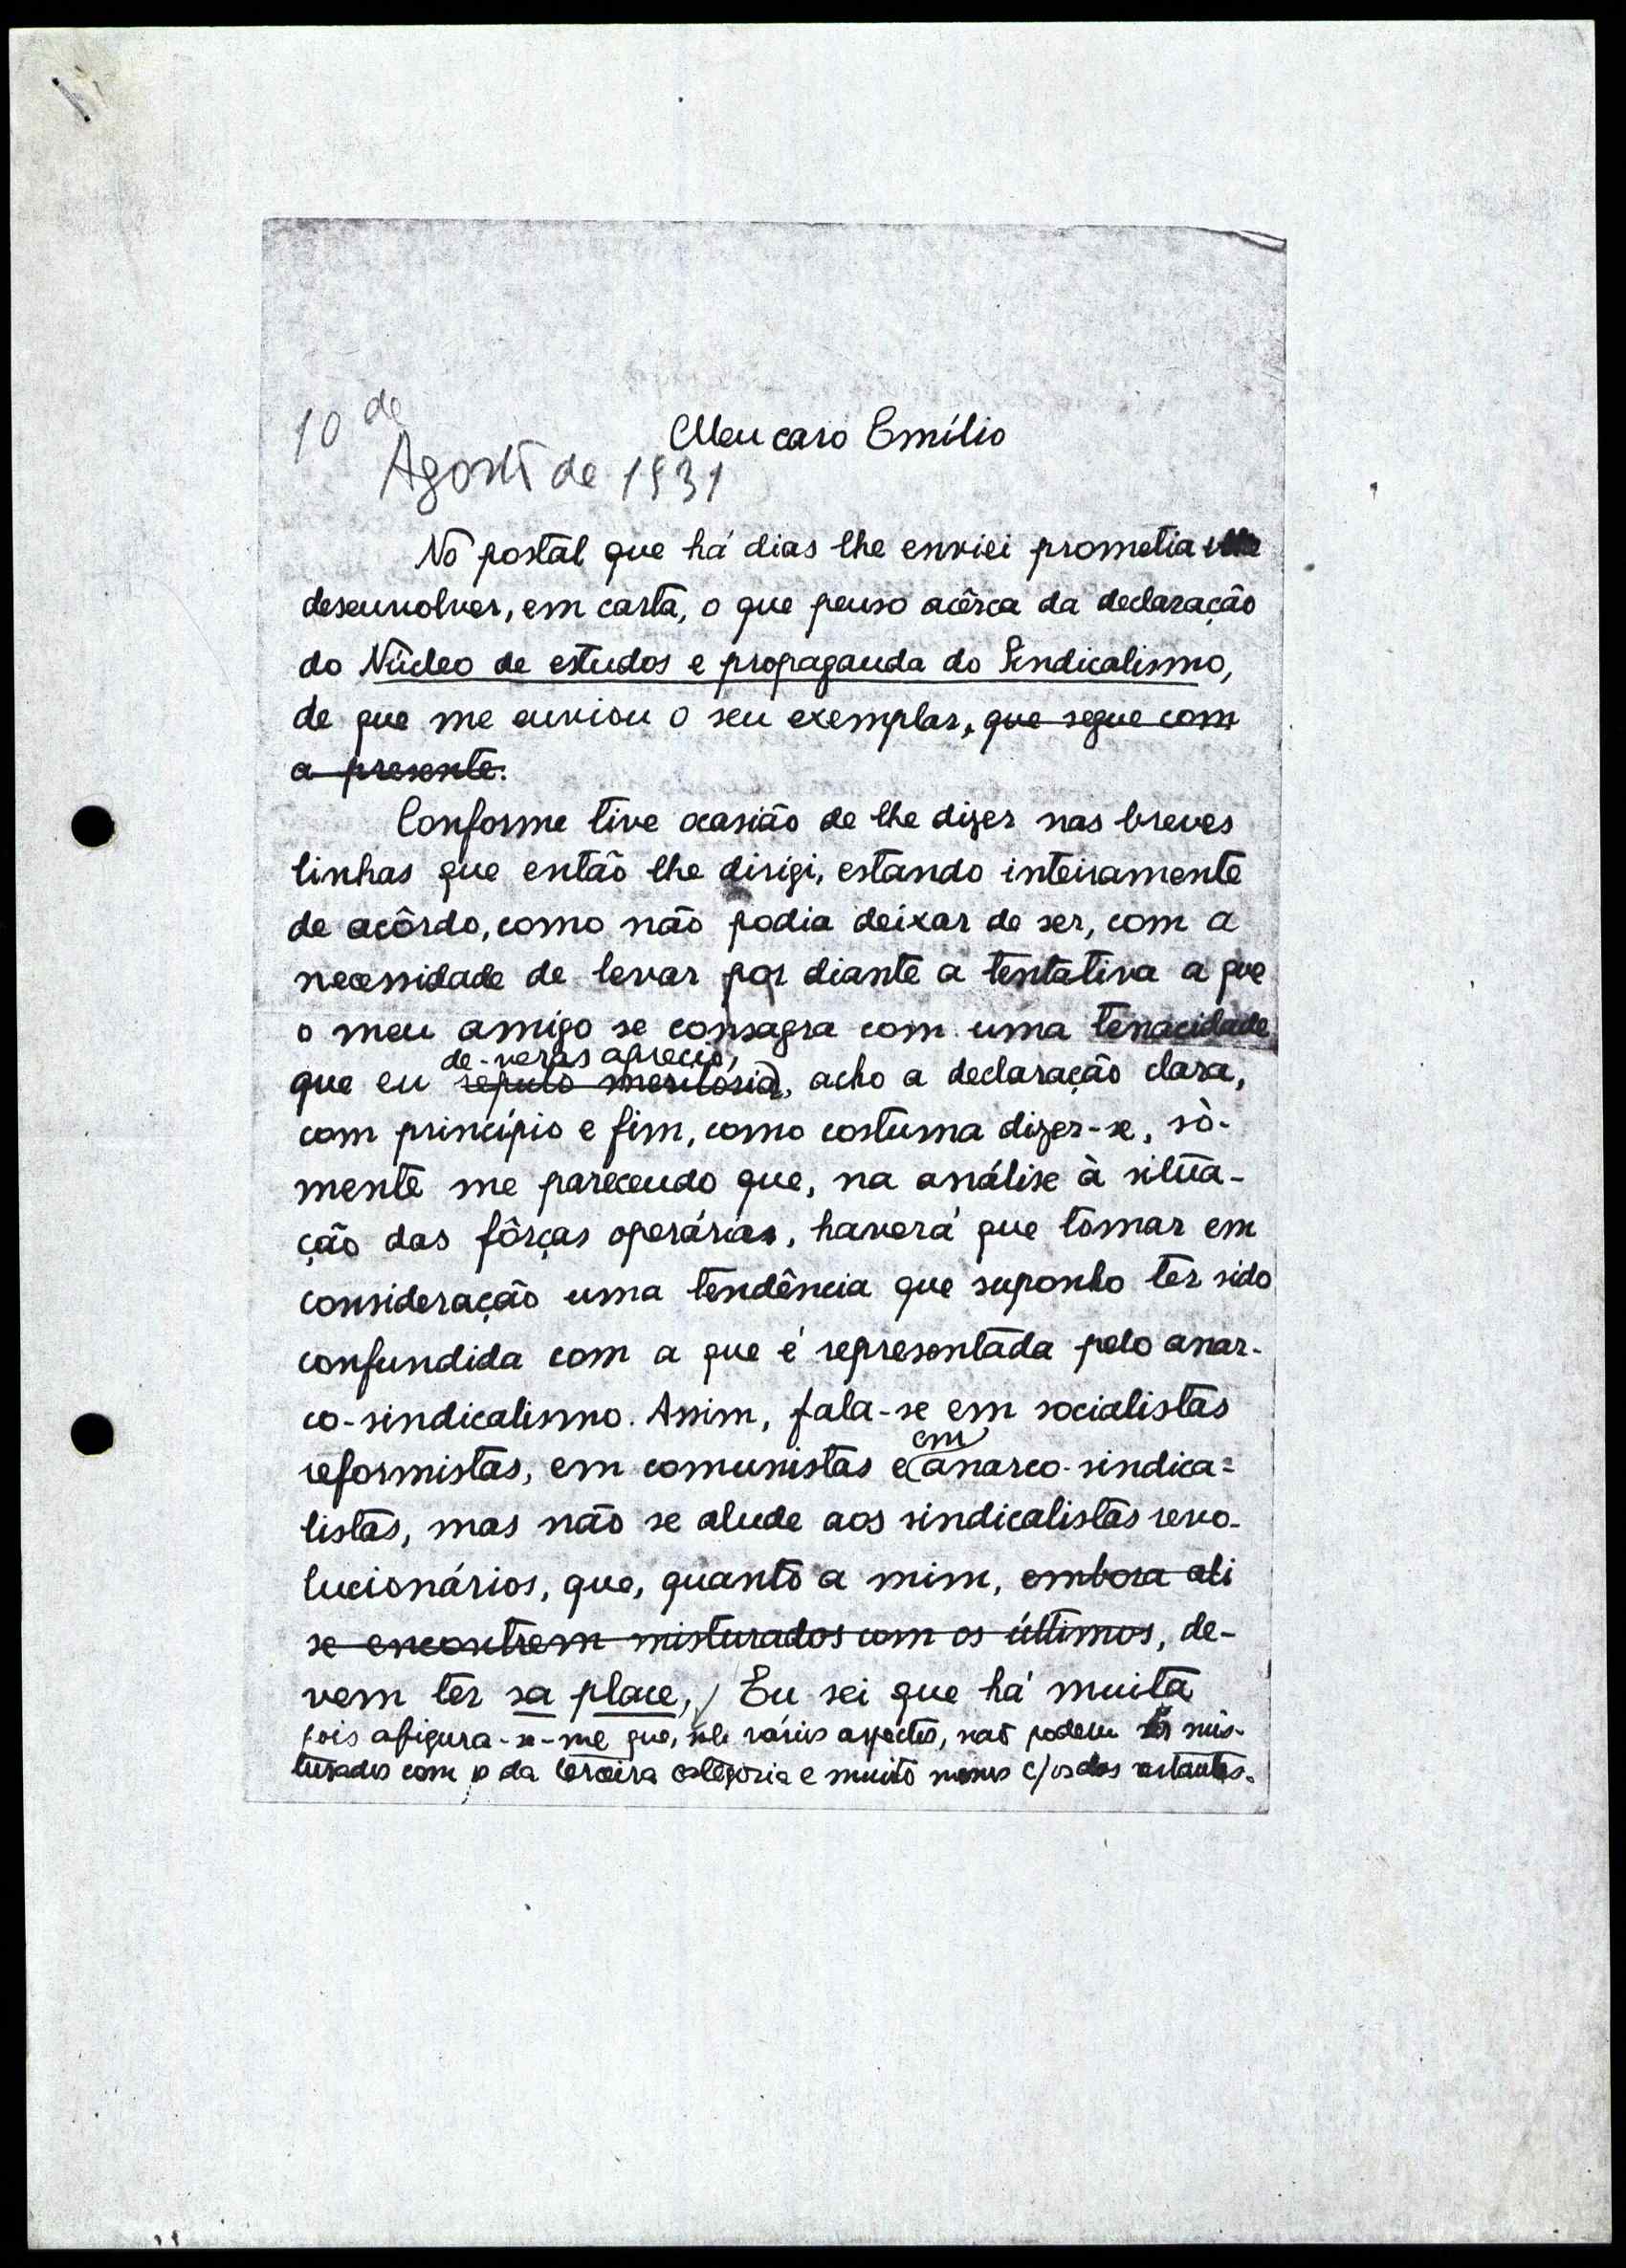 10 de
Agosto de 1931
Meu caro Emílio
No postal que há dias lhe enviei prometia
desenvolver, em carta, o que penso acêrca da declaração
do Núcleo de estudos e propaganda do Sindicalismo,
de que me enviou o seu exemplar, que segue com
a presente.
Conforme tive ocasião de lhe dizer nas breves
linhas que então lhe dirigi, estando inteiramente
de acôrdo, como não podia deixar de ser, com a
necessidade de levar por diante a tentativa a que
o meu amigo se consagra com uma tenacidade
de-veras aprecio,
que eu reputo meritória, acho a declaração clara,
com princípio e fim, como costuma dizer-se, sò-
mente me parecendo que, na análise à situa-
ção das fôrças operárias, haverá que tomar em
consideração uma tendência que suponho ter sido
confundida com a que é representada pelo anar-
co-sindicalismo. Assim, fala-se em socialistas
em
reformistas, em comunistas e anarco-sindica-
listas, mas não se alude aos sindicalistas revo-
lucionários, que, quanto a mim, embora ali
se encontrem misturados com os últimos, de-
vem ter sa place, Eu sei que há muita
pois afigura-se-me que, sob vários aspectos, não podem ser mis-
turados com o da terceira categoria e muito menos c/ os dos restantes.